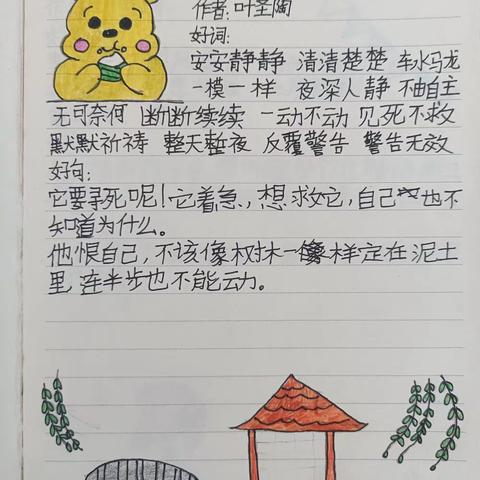 作者:叶圣陶
好词:
安安静静 清清楚楚 车水马龙
一模一样 夜深人静 不由自主
无可奈何 断断续续 一动不动 见死不救
默默祈祷 整天整夜 反覆警告 警告无效
好句:
它要寻死呢!它着急,想救它,自己也不
知道为什么。
他恨自己,不该像树木一样定在泥土
里,连半步也不能动。